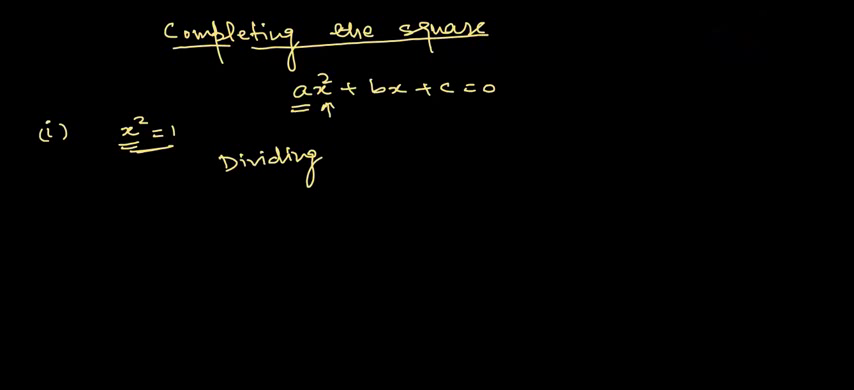 Completing the square
ax² + bx + c = 0
(i) x² = 1
Dividing